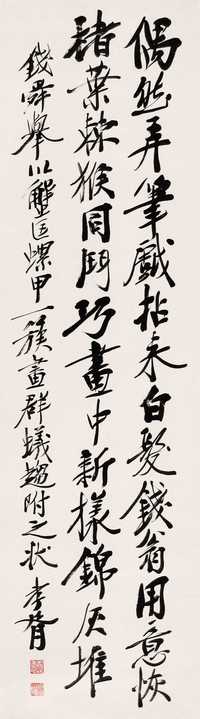 偶然弄筆戲拈來白髮錢翁用意恢
楮葉棘猴同鬥巧畫中新樣錦灰堆
錢舜舉以蟹匡螺甲一簇畫群蟻趨附之狀 李